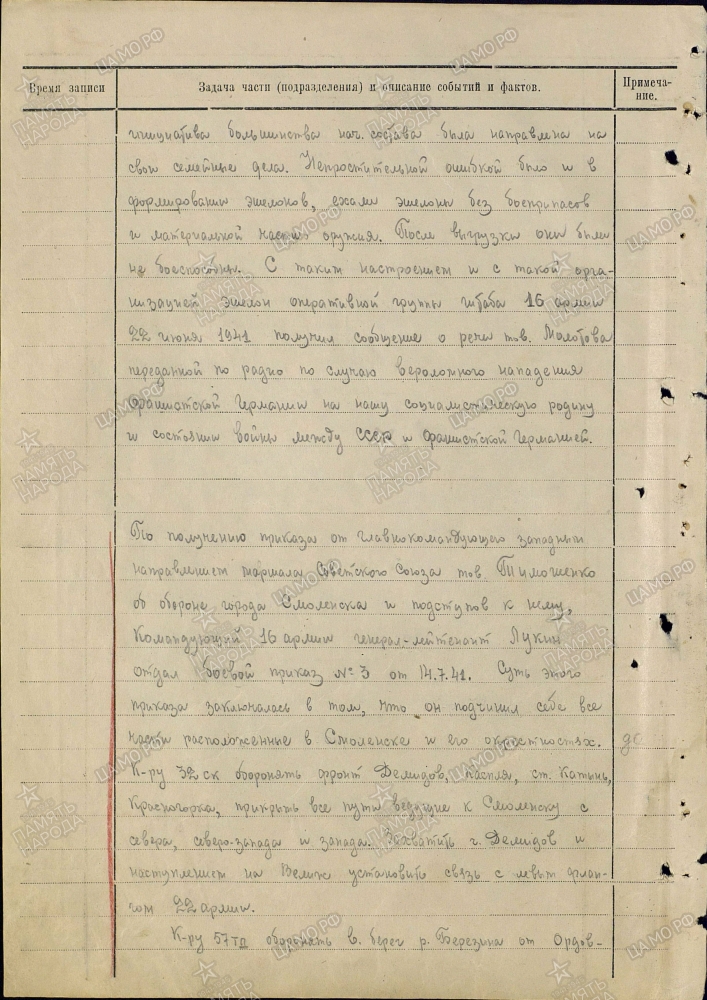 Время записи
Задача части (подразделения) и описание событий и фактов.
Примеча-
ние.
инициатива большинства нач. состава была направлена на
свои семейные дела. Непростительной ошибкой было и в
формировании эшелонов, ехали эшелоны без боеприпасов
и материальной части оружия. После выгрузки они были
не боеспособны. С таким настроением и с такой орга-
низацией эшелон оперативной группы штаба 16 армии
22 июня 1941 получил сообщение о речи тов. Молотова
переданной по радио по случаю вероломного нападения
фашистской Германии на нашу социалистическую родину
и состоянии войны между СССР и фашистской Германией.
По получению приказа от главнокомандующего западным
направлением маршала Советского Союза тов Тимошенко
об обороне города Смоленска и подступов к нему,
Командующий 16 армии генерал-лейтенант Лукин
отдал боевой приказ № 3 от 14.7.41. Суть этого
приказа заключалась в том, что он подчинил себе все
части расположенные в Смоленске и его окрестностях.
К-ру 32 ск оборонять фронт Демидов, Каспля, ст. Катынь,
Красногорка, прикрыть все пути ведущие к Смоленску с
севера, северо-запада и запада. Захватить г. Демидов и
наступлением на Велиж установить связь с левым флан-
гом 22 армии.
К-ру 57 тд оборонять в. берег р. Березина от Ордов-
ПАМЯТЬ НАРОДА
ЦАМО РФ